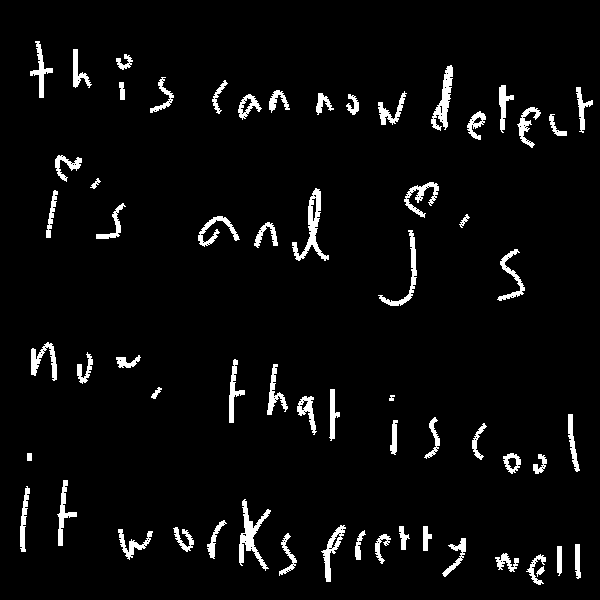 this can now detect
i's and j's
now, that is cool
it works pretty well